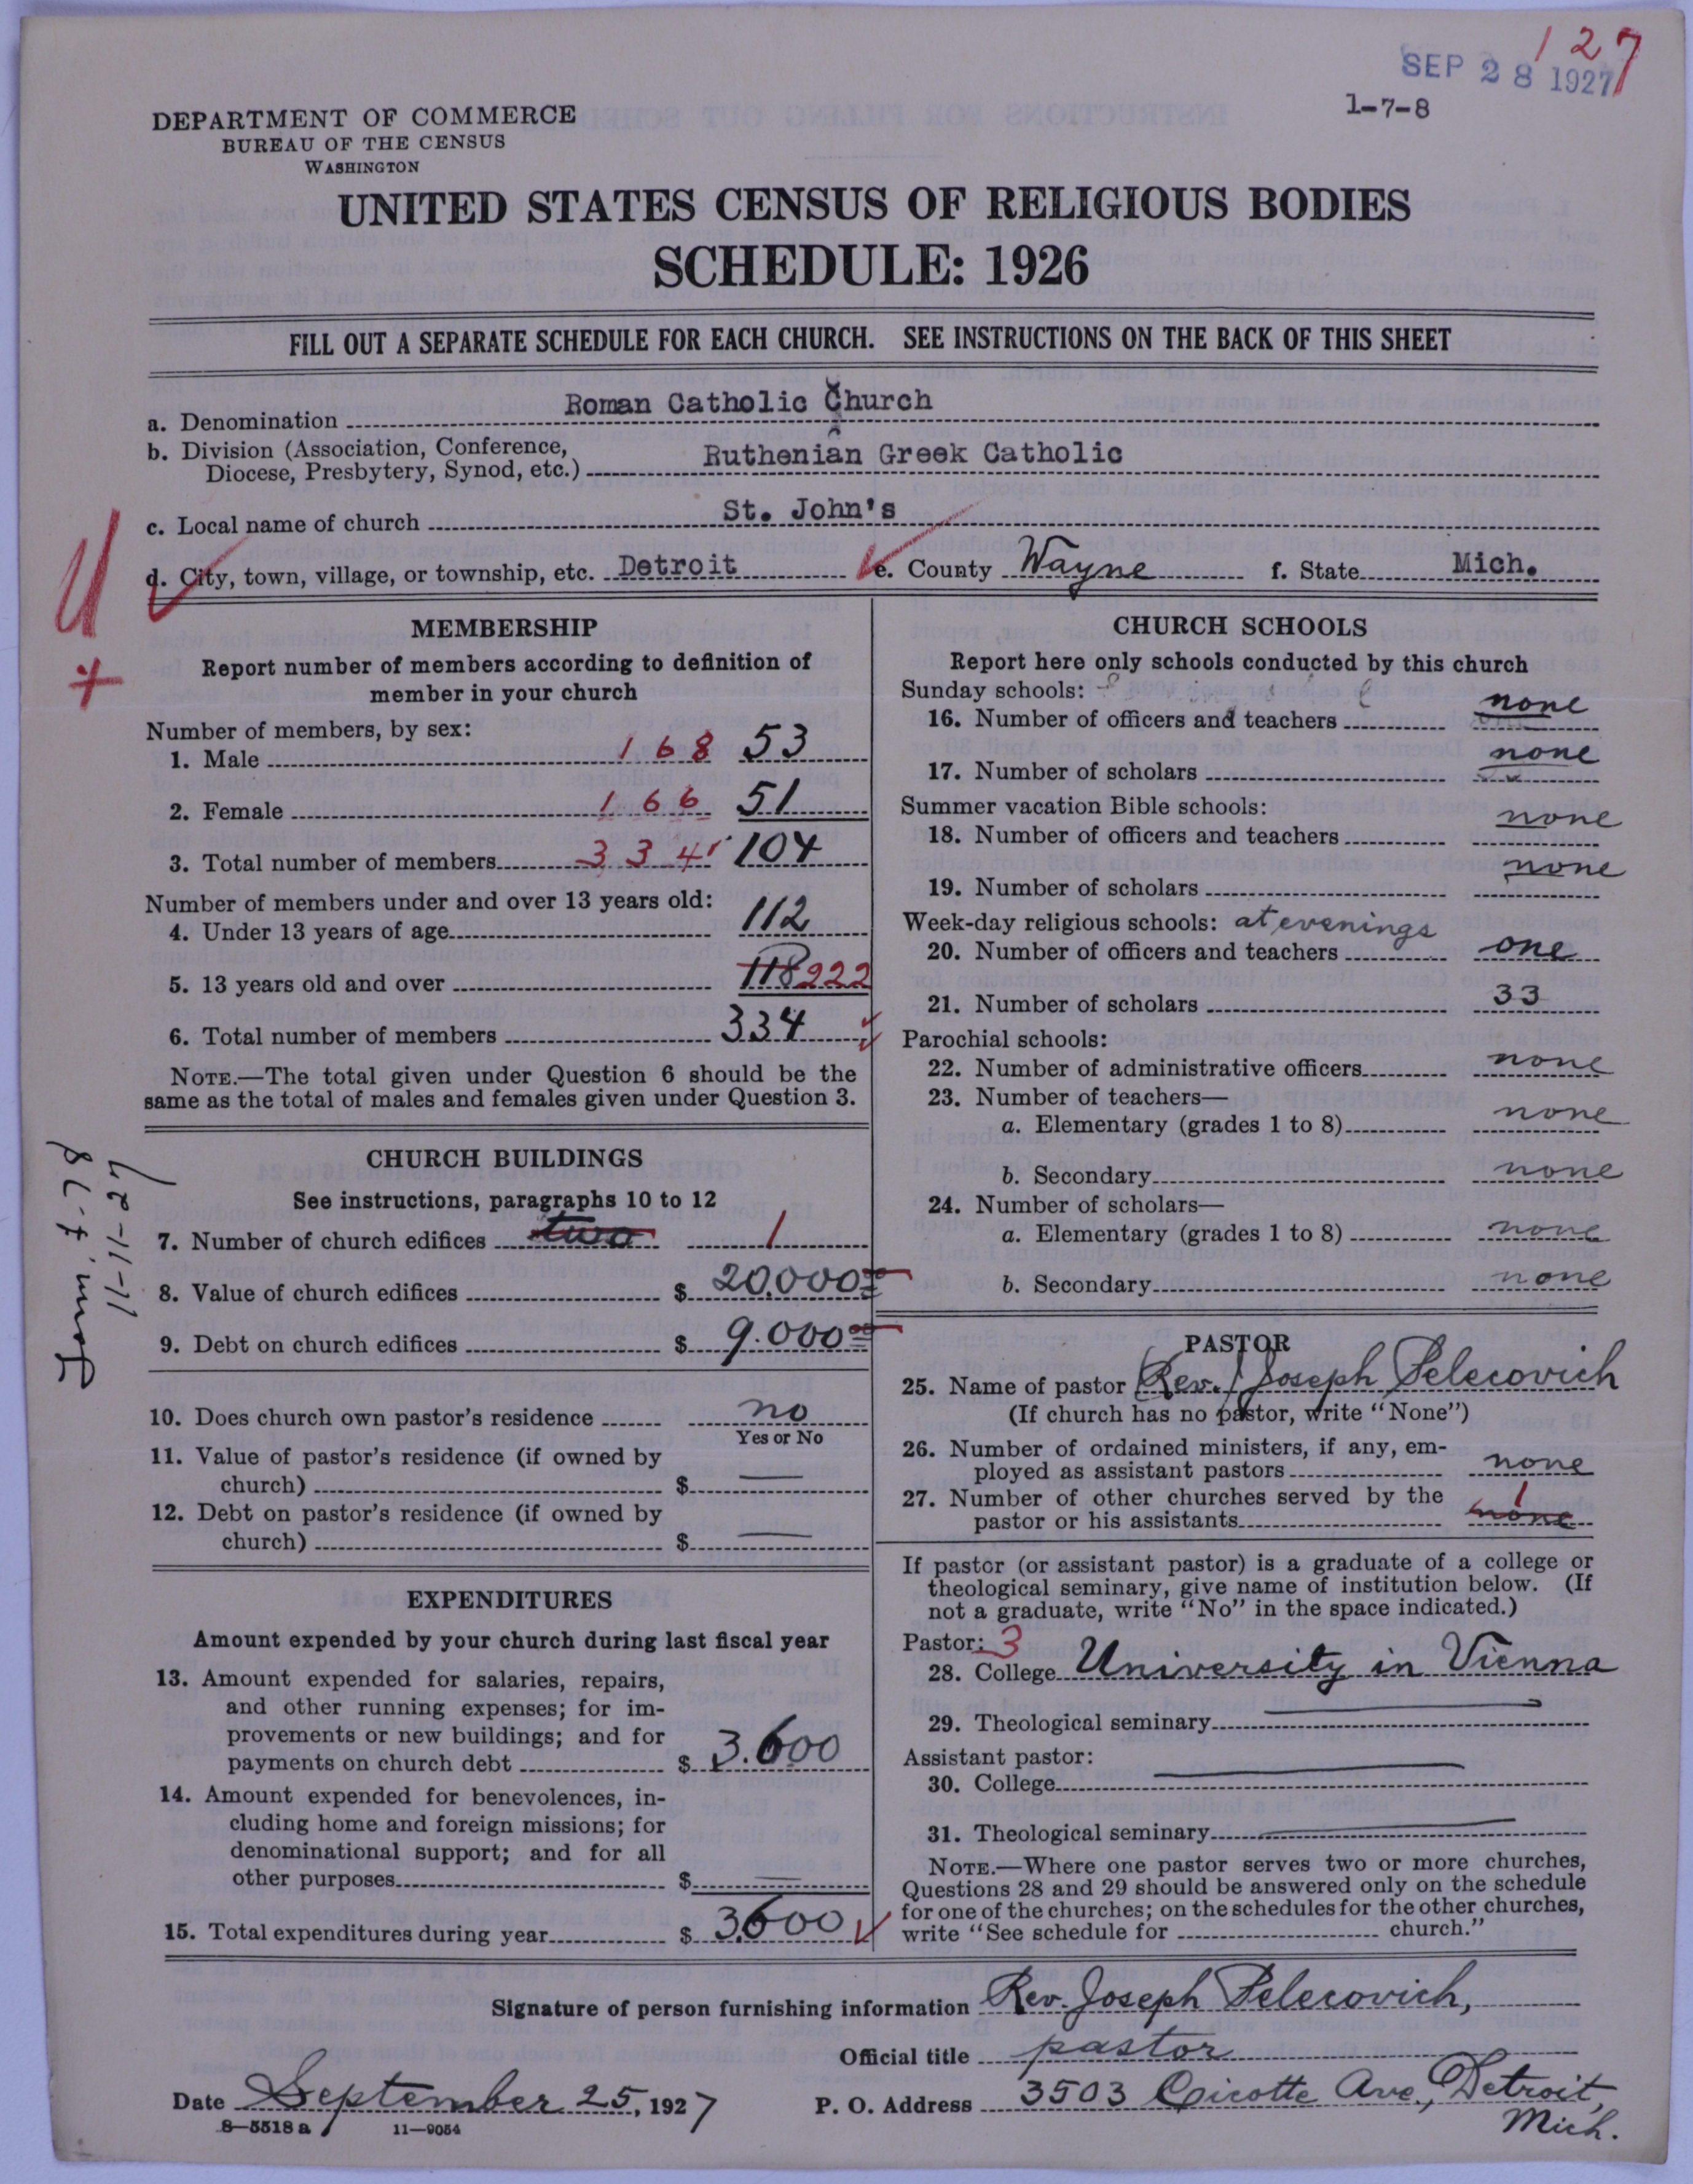 127
SEP 28 1927
1-7-8
DEPARTMENT OF COMMERCE
BUREAU OF THE CENSUS
WASHINGTON
UNITED STATES CENSUS OF RELIGIOUS BODIES
SCHEDULE: 1926
FILL OUT A SEPARATE SCHEDULE FOR EACH CHURCH. SEE INSTRUCTIONS ON THE BACK OF THIS SHEET
a. Denomination Roman Catholic Church
b. Division (Association, Conference,
Diocese, Presbytery, Synod, etc.) Ruthenian Greek Catholic
c. Local name of church St. John's
d. City, town, village, or township, etc. Detroit e. County Wayne f. State Mich.
MEMBERSHIP
Report number of members according to definition of
member in your church
Number of members, by sex:
1. Male 168 53
2. Female 166 51
3. Total number of members 334 104
Number of members under and over 13 years old:
4. Under 13 years of age 112
5. 13 years old and over 118 222
6. Total number of members 334
NOTE.—The total given under Question 6 should be the
same as the total of males and females given under Question 3.
CHURCH BUILDINGS
See instructions, paragraphs 10 to 12
7. Number of church edifices two 1
8. Value of church edifices $ 20.000 00
9. Debt on church edifices $ 9.000 00
10. Does church own pastor's residence no
Yes or No
11. Value of pastor's residence (if owned by
church) $ —
12. Debt on pastor's residence (if owned by
church) $ —
EXPENDITURES
Amount expended by your church during last fiscal year
13. Amount expended for salaries, repairs,
and other running expenses; for im-
provements or new buildings; and for
payments on church debt $ 3.600
14. Amount expended for benevolences, in-
cluding home and foreign missions; for
denominational support; and for all
other purposes $ —
15. Total expenditures during year $ 3600
CHURCH SCHOOLS
Report here only schools conducted by this church
Sunday schools:
16. Number of officers and teachers none
17. Number of scholars none
Summer vacation Bible schools:
18. Number of officers and teachers none
19. Number of scholars none
Week-day religious schools: at evenings
20. Number of officers and teachers one
21. Number of scholars 33
Parochial schools:
22. Number of administrative officers none
23. Number of teachers—
a. Elementary (grades 1 to 8) none
b. Secondary none
24. Number of scholars—
a. Elementary (grades 1 to 8) none
b. Secondary none
PASTOR
25. Name of pastor (Rev.) Joseph Pelecovich
(If church has no pastor, write "None")
26. Number of ordained ministers, if any, em-
ployed as assistant pastors none
27. Number of other churches served by the
pastor or his assistants none 1
If pastor (or assistant pastor) is a graduate of a college or
theological seminary, give name of institution below. (If
not a graduate, write "No" in the space indicated.)
Pastor: 3
28. College University in Vienna
29. Theological seminary —
Assistant pastor:
30. College —
31. Theological seminary —
NOTE.—Where one pastor serves two or more churches,
Questions 28 and 29 should be answered only on the schedule
for one of the churches; on the schedules for the other churches,
write "See schedule for church."
Signature of person furnishing information Rev. Joseph Pelecovich,
Official title pastor
Date September 25, 1927 P. O. Address 3503 Cicotte Ave., Detroit,
Mich.
8—5518 a 11—9054
11-11-27